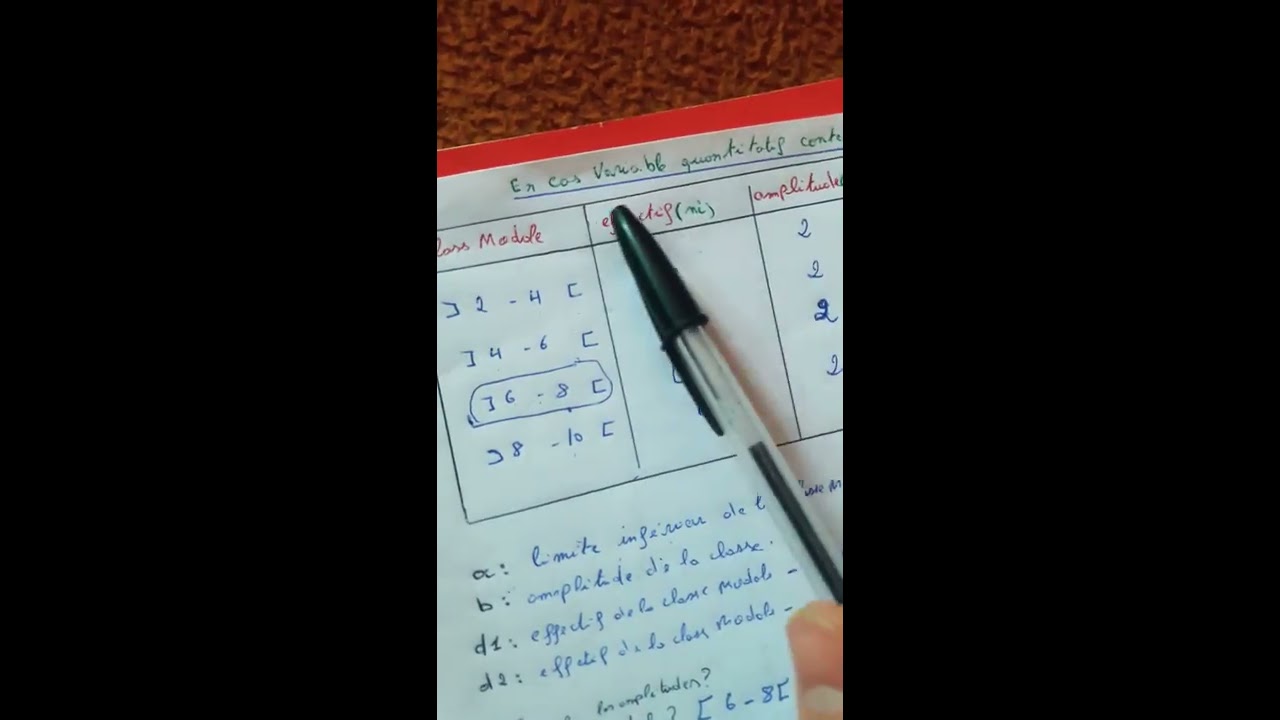 En cas Variable quantitatif conte
lass Modole effectif (ni) amplitudes
]2 - 4[ 2
]4 - 6[ 2
]6 - 8[ 2
]8 - 10[ 2
a: limite inférieur de l
b: amplitude de la classe.
d1: effectif de la classe Modole -
d2: effetif de la class Modole -
les amplitudes?
? [6 - 8[